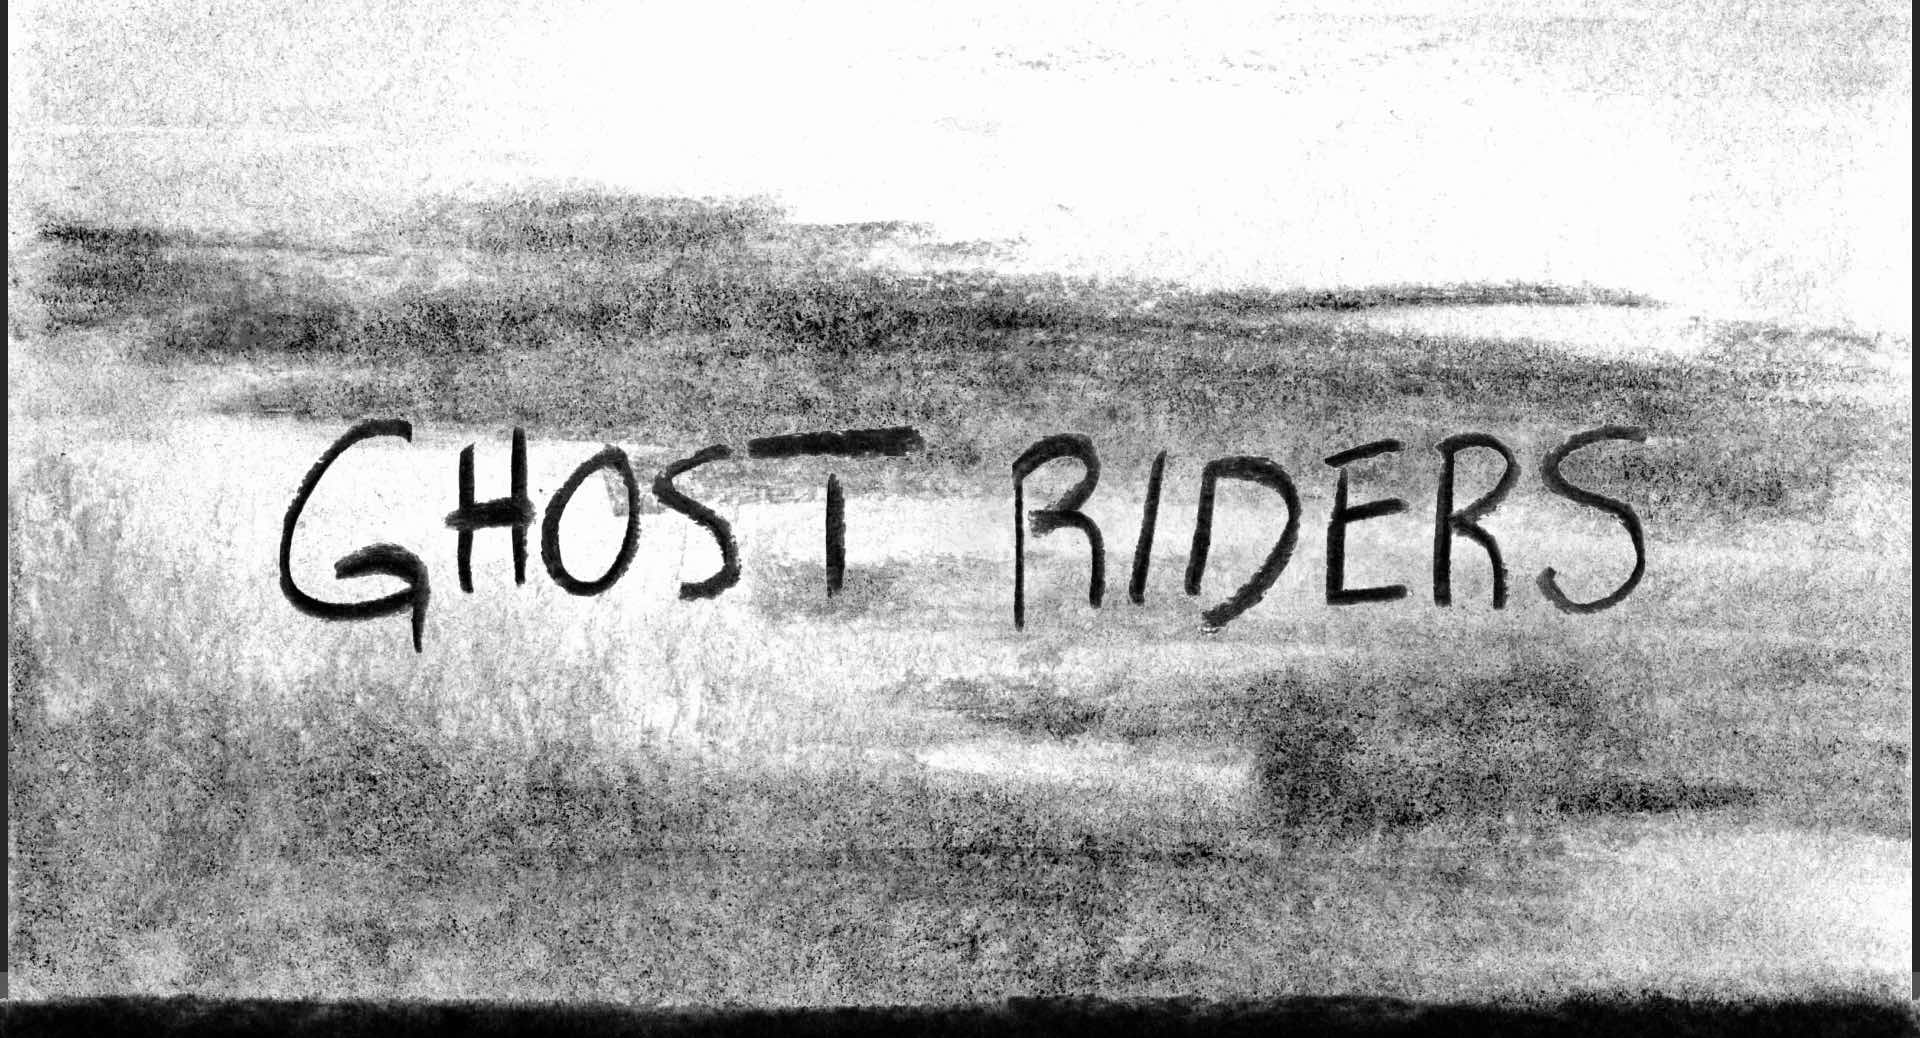 GHOST RIDERS